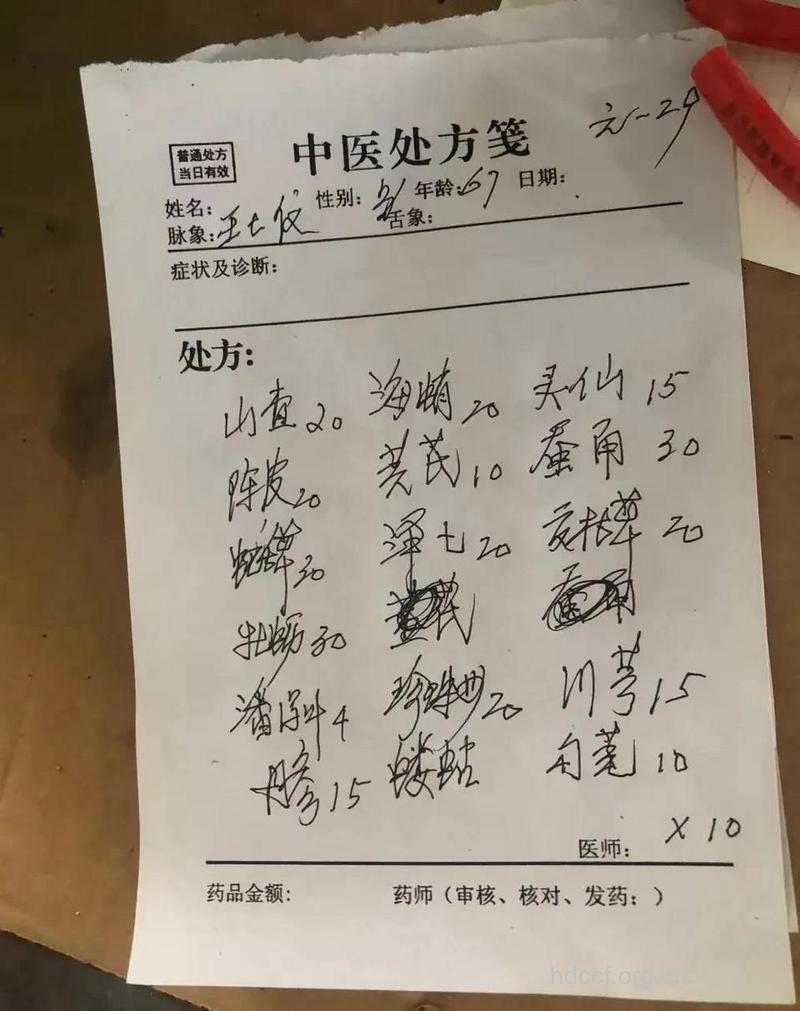 元-29
普通处方
当日有效
中医处方笺
姓名: 性别: 年龄:67 日期:
脉象: 王七 舌象:
症状及诊断:
处方:
山查20 海蛸20 灵仙15
陈皮20 黄芪10 蚕甬30
20 泽七20 夏枯草20
牡蛎30
潘泻叶4 珍珠母20 川芎15
丹参15 蝼蛄 10
×10
医师:
药品金额: 药师(审核、核对、发药:)
hdccf.org.cn